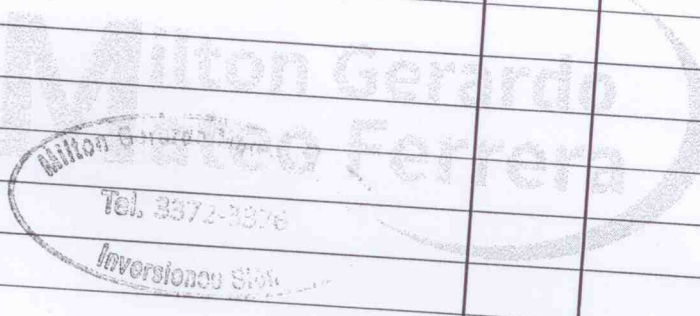 Milton Gerardo
Mateo Ferrera
Milton
Tel. 3372-3376
Inversiones